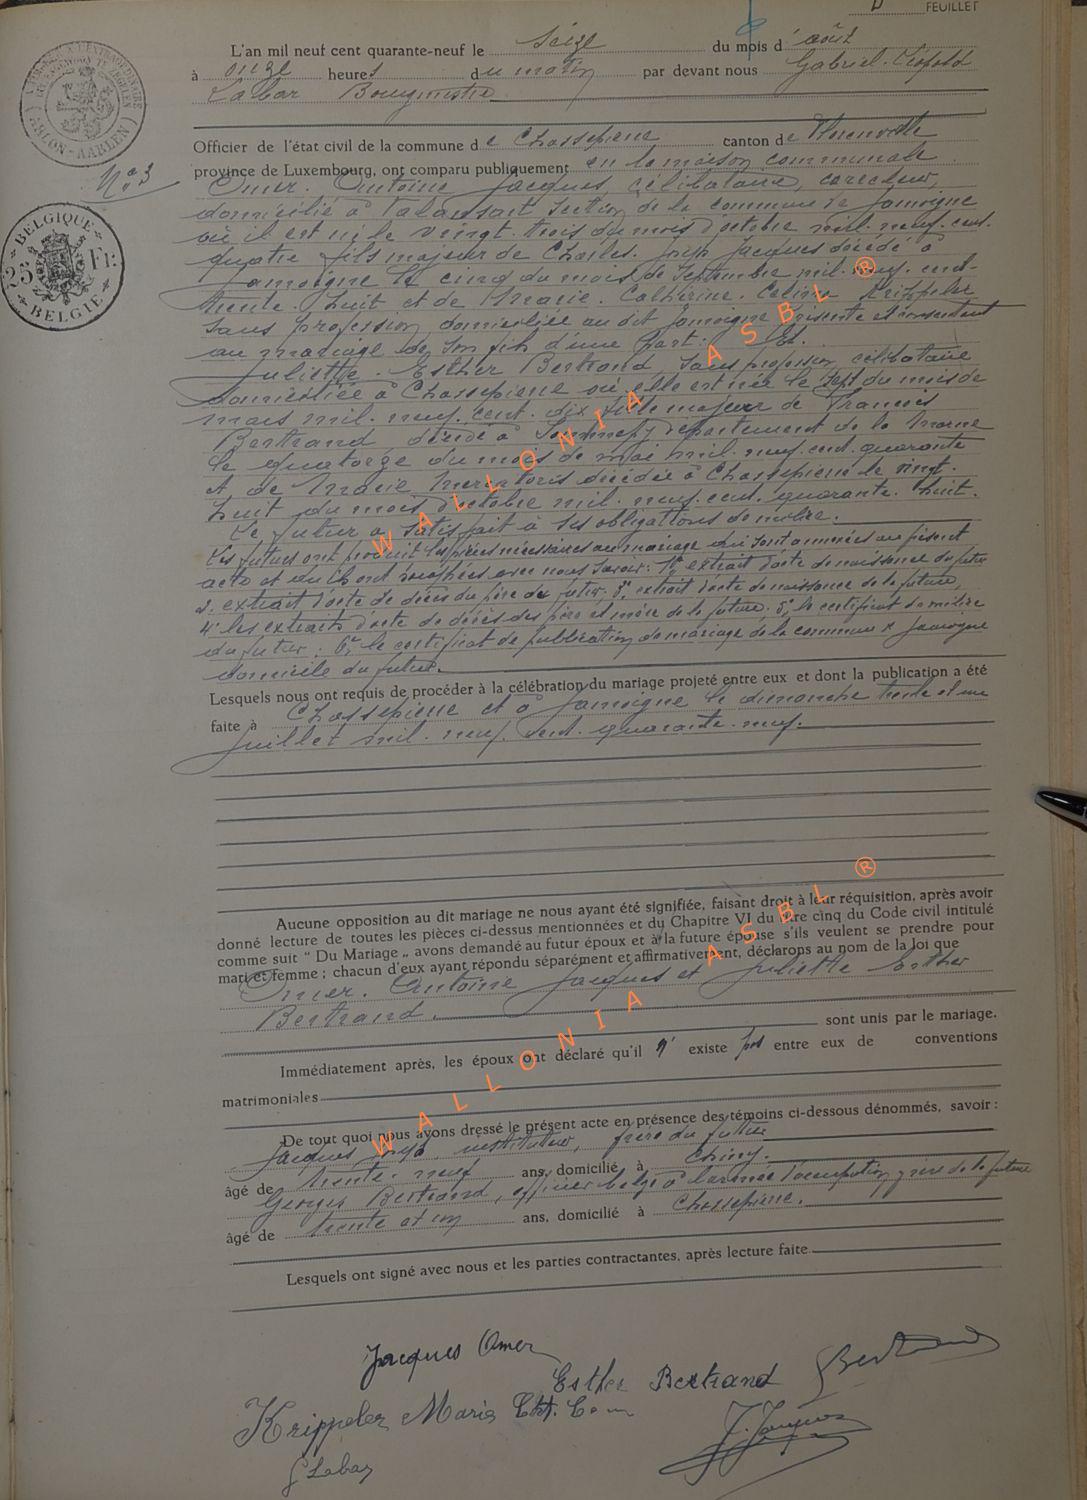 FEUILLET
L'an mil neuf cent quarante-neuf le seize du mois d'août
à onze heures du matin par devant nous Gabriel-Léopold
Labar Bourgmestre
Officier de l'état civil de la commune de Chassepierre canton de Florenville
province de Luxembourg, ont comparu publiquement en la maison communale
N° 3
Omer. Antoine Jacques, célibataire,
domicilié à section de la commune de Jamoigne
où il est né le vingt. trois du mois d'octobre mil. neuf. cent.
quatre fils majeur de Charles. Jacques décédé à
Jamoigne le cinq du mois de Septembre mil. neuf. cent.
trente. huit et de Marie. Catherine. Krippeler
sans profession, domiciliée au dit Jamoigne présente et consentant
au mariage de son fils d'une part: Et.
Juliette. Esther Bertrand, sans profession, célibataire
domiciliée à Chassepierre où elle est née le sept du mois de
mars mil. neuf. cent. dix fille majeure de François
Bertrand décédé à département de la Marne
le quatorze du mois de mai mil. neuf. cent. quarante
et de Marie décédée à Chassepierre le vingt.
huit du mois d'octobre mil. neuf. cent. quarante. huit.
Le futur a satisfait à ses obligations de milice.
Les futurs ont produit les pièces nécessaires au mariage qui sont annexées au présent
acte et savoir: 1° extrait d'acte de naissance du futur
2. extrait d'acte de décès du père du futur. 3° extrait d'acte de naissance de la future,
4° les extraits d'acte de décès des père et mère de la future. 5° le certificat de milice
du futur; 6° le certificat de publication de mariage de la commune de Jamoigne
domicile du futur.
Lesquels nous ont requis de procéder à la célébration du mariage projeté entre eux et dont la publication a été
faite à Chassepierre et à Jamoigne le dimanche trente et un
Juillet mil. neuf. cent. quarante. neuf.
Aucune opposition au dit mariage ne nous ayant été signifiée, faisant droit à leur réquisition, après avoir
donné lecture de toutes les pièces ci-dessus mentionnées et du Chapitre VI du titre cinq du Code civil intitulé
comme suit " Du Mariage „ avons demandé au futur époux et à la future épouse s'ils veulent se prendre pour
mari et femme ; chacun d'eux ayant répondu séparément et affirmativement, déclarons au nom de la loi que
Omer. Antoine Jacques et Juliette Esther
Bertrand. sont unis par le mariage.
Immédiatement après, les époux ont déclaré qu'il n' existe pas entre eux de conventions
matrimoniales
De tout quoi nous avons dressé le présent acte en présence des témoins ci-dessous dénommés, savoir :
Jacques instituteur, frère du futur
âgé de trente. neuf ans, domicilié à Chiny.
Georges Bertrand, officier belge à l'armée d'occupation, frère de la future
âgé de trente et un ans, domicilié à Chassepierre.
Lesquels ont signé avec nous et les parties contractantes, après lecture faite.
Jacques Omer
Esther Bertrand
Bertrand
Krippeler Marie
J. Jacques
G Labar
BELGIQUE
5 Fr.
BELGIË
ARLON-AARLEN
WALLONIA ASBL ®
WALLONIA ASBL ®